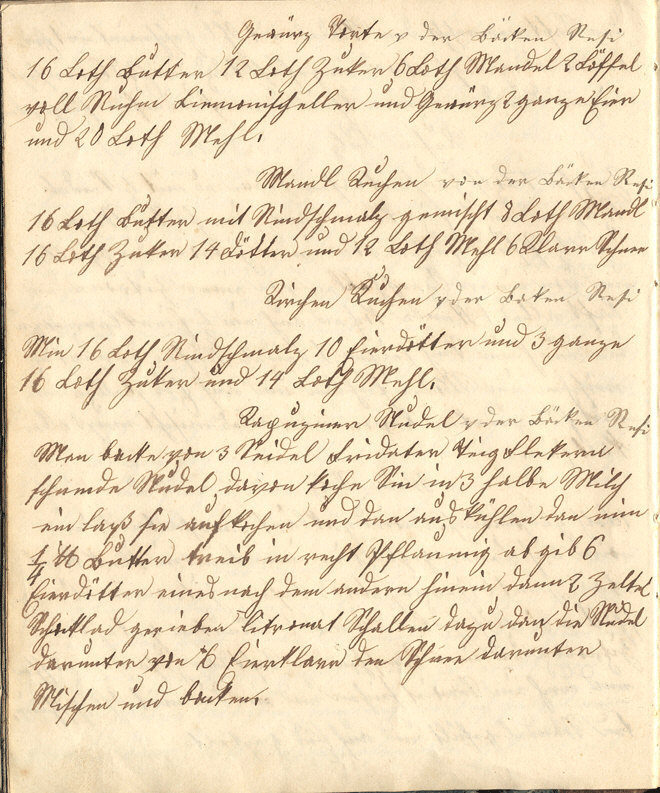 Gewürz Torte v der Böcken Resi
16 Loth Butter 12 Loth Zuker 6 Loth Mandel 2 Löffel
voll Ruhm Liemonischeller und Gewürz 2 ganze Eier
und 20 Loth Mehl.
Mandl Kuchen von der Böcken Resi
16 Loth Butter mit Rindschmalz gemischt 8 Loth Mandl
16 Loth Zuker 14 Dötter und 12 Loth Mehl 6 Klarr Schnee
Kirchen Kuchen v der Boken Resi
Min 16 Loth Rindschmalz 10 Eierdötter und 3 ganze
16 Loth Zuker und 14 Loth Mehl.
Kapuziner Nudel v der Böcken Resi
Man backe von 3 Seidel Teig Flekern
Nudel, davon koche Sie in 3 halbe Milch
ein laß sie aufkochen und dan auskühlen dan nim
1/4 ℔ Butter treib in recht Pflaumig ab gib 6
Eierdötter eines nach dem andern hinein, dann 2 Zeltel
Schoklad gerieben Citronat Schallen dazu dan die Nudel
darunter von 6 Eierklarr den Schnee darunter
Mischen und backen.